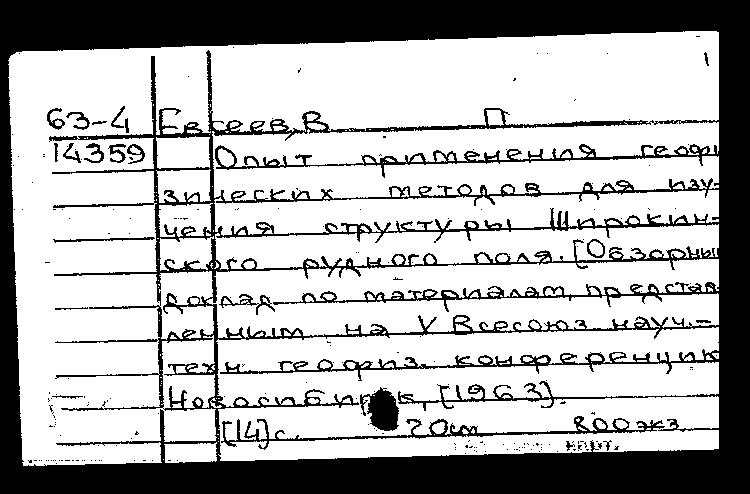 63-4 Евсеев, В П
14359 Опыт применения геофи
зических методов для изу-
чения структуры Широкин-
ского рудного поля. [Обзорны
доклад по материалам, представ-
ленным на V Всесоюз науч.-
техн. геофиз. конференцию
Новосибирск, [1963].
[14] с. 20 см 800 экз.